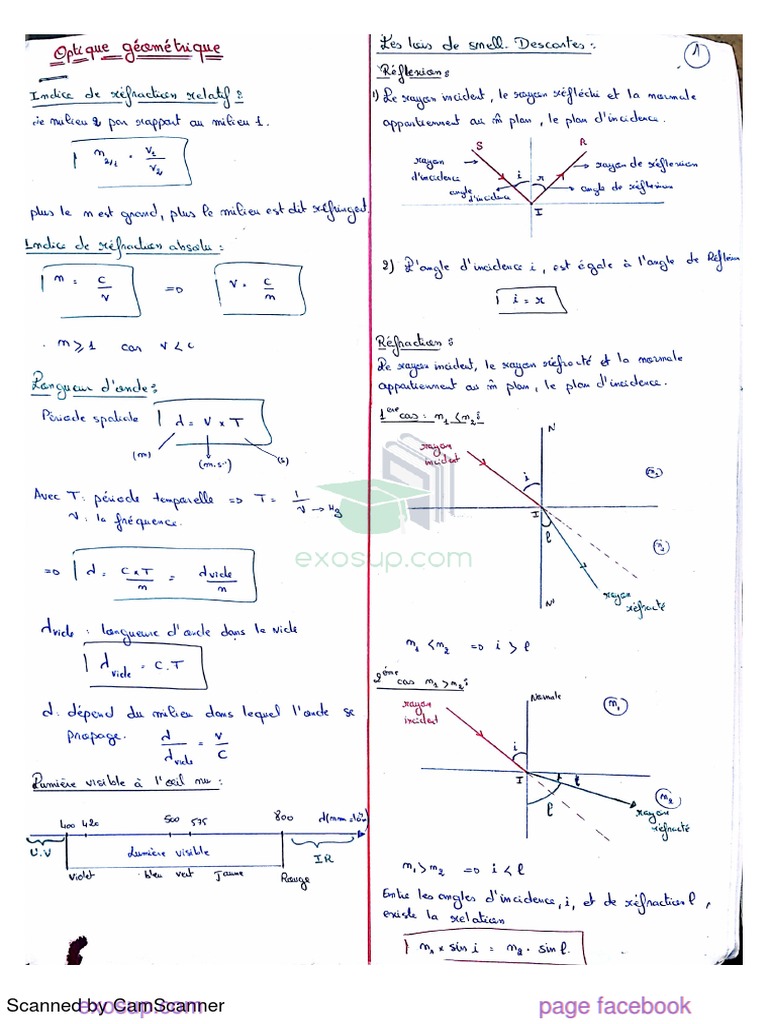 Optique géométrique
Indice de réfraction relatif :
de milieu 2 par rapport au milieu 1.
n2/1 = V1/V2
plus le n est grand, plus le milieu est dit réfringent.
Indice de réfraction absolu :
n = C/V => V = C/n
. n ⩾ 1 car V < c
Longueur d'onde :
Période spatiale λ = V x T
(m) (m.s⁻¹) (s)
Avec T : période temporelle => T = 1/ν → Hz
ν : la fréquence.
=> λ = C x T/n = λvide/n
λvide : longueure d'onde dans le vide
λvide = C.T
λ : dépend du milieu dans lequel l'onde se
propage. λ/λvide = V/C
Lumière visible à l'œil nu :
400 420 500 575 800
U.V Lumière visible IR
Violet bleu vert Jaune Rouge
Les lois de snell. Descartes :
1
Réflexion :
1) Le rayon incident, le rayon réfléchi et la normale
appartiennent au m̂ plan, le plan d'incidence.
S R
rayon d'incidence
i r
rayon de réflexion
angle d'incidence
angle de réflexion
I
2) L'angle d'incidence i, est égale à l'angle de Réflexion
i = r
Réfraction :
Le rayon incident, le rayon réfracté et la normale
appartiennent au m̂ plan, le plan d'incidence.
1ère cas : n1 < n2 :
N
rayon incident
i
I
l
rayon réfracté
N'
n1 < n2 => i > l
2éme cas n1 > n2 :
Normale
n1
rayon incident
i
I
l
l
n2
rayon réfracté
n1 > n2 => i < l
Entre les angles d'incidence, i, et de réfraction l,
existe la relation
n1 x sin i = n2 . sin l.
exosup.com
Scanned by CamScanner
exosup.com
page facebook